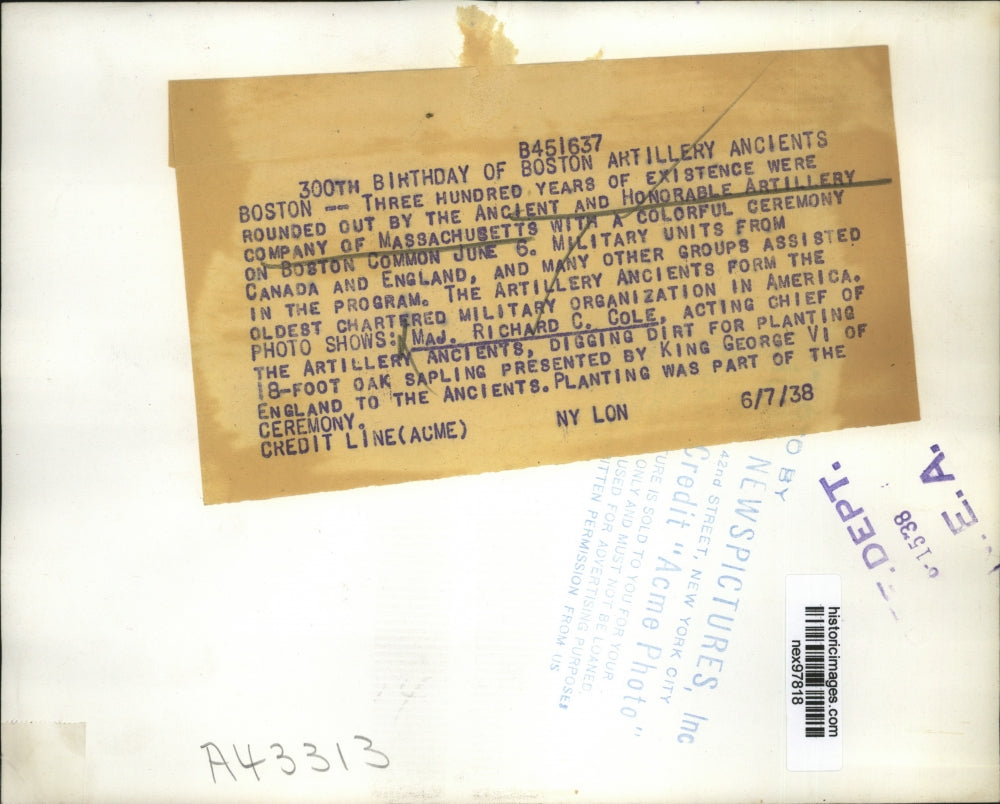 B451637
300TH BIRTHDAY OF BOSTON ARTILLERY ANCIENTS
BOSTON -- THREE HUNDRED YEARS OF EXISTENCE WERE
ROUNDED OUT BY THE ANCIENT AND HONORABLE ARTILLERY
COMPANY OF MASSACHUSETTS WITH A COLORFUL CEREMONY
ON BOSTON COMMON JUNE 6. MILITARY UNITS FROM
CANADA AND ENGLAND, AND MANY OTHER GROUPS ASSISTED
IN THE PROGRAM. THE ARTILLERY ANCIENTS FORM THE
OLDEST CHARTERED MILITARY ORGANIZATION IN AMERICA.
PHOTO SHOWS: MAJ. RICHARD C. COLE, ACTING CHIEF OF
THE ARTILLERY ANCIENTS, DIGGING DIRT FOR PLANTING
18-FOOT OAK SAPLING PRESENTED BY KING GEORGE VI OF
ENGLAND TO THE ANCIENTS. PLANTING WAS PART OF THE
CEREMONY.
CREDIT LINE (ACME) NY LON 6/7/38
O BY
NEWSPICTURES, Inc
42nd STREET, NEW YORK CITY
Credit "Acme Photo"
URE IS SOLD TO YOU FOR YOUR
ONLY AND MUST NOT BE LOANED
USED FOR ADVERTISING PURPOSES
ITTEN PERMISSION FROM US
DEPT.
1538
E. A.
historicimages.com
nex97818
A43313